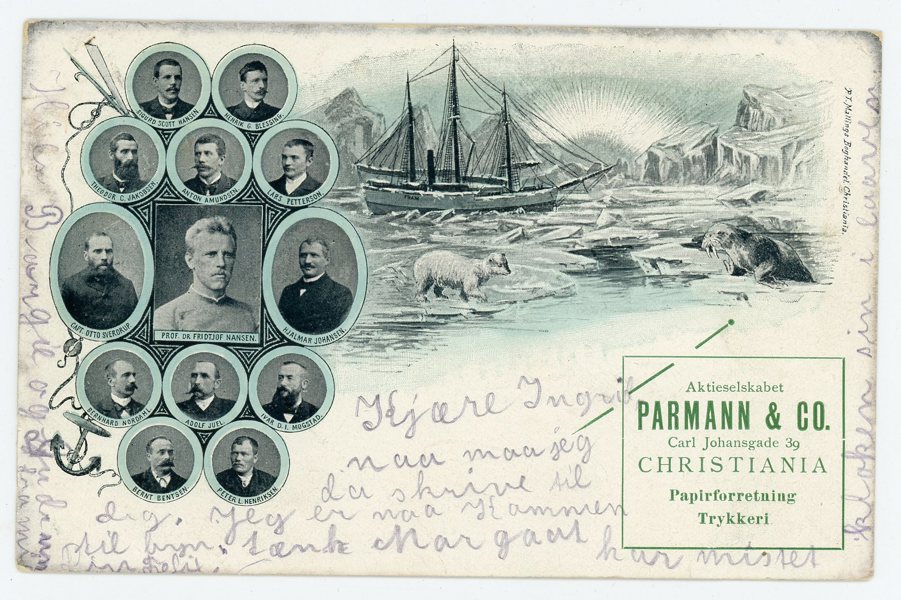 SIGURD SCOTT HANSEN
HENRIK G. BLESSING.
THEODOR C. JAKOBSEN
ANTON AMUNDSEN.
LARS PETTERSON.
CAPT. OTTO SVERDRUP.
PROF. DR. FRIDTJOF NANSEN.
HJALMAR JOHANSEN.
BERNHARD NORDAHL.
ADOLF JUEL.
IVAR D. I. MOGSTAD.
BERNT BENTSEN.
PETER L. HENRIKSEN.
FRAM
P. T. Mallings Boghandel, Christiania.
Aktieselskabet
PARMANN & CO.
Carl Johansgade 39
CHRISTIANIA
Papirforretning
Trykkeri
Kjære Ingrid
naa maa jeg
da skrive til
dig. Jeg er naa Kommen
til byn. tænk Margaat
har mistet
kloken sin i